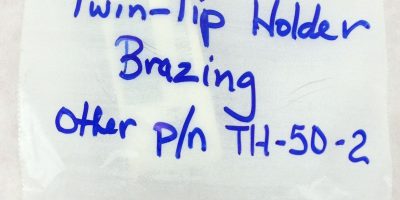 Twin-Tip Holder
Brazing
Other p/n TH-50-2